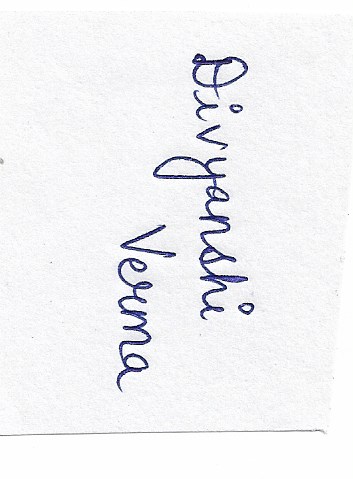 Divyanshi
Verma